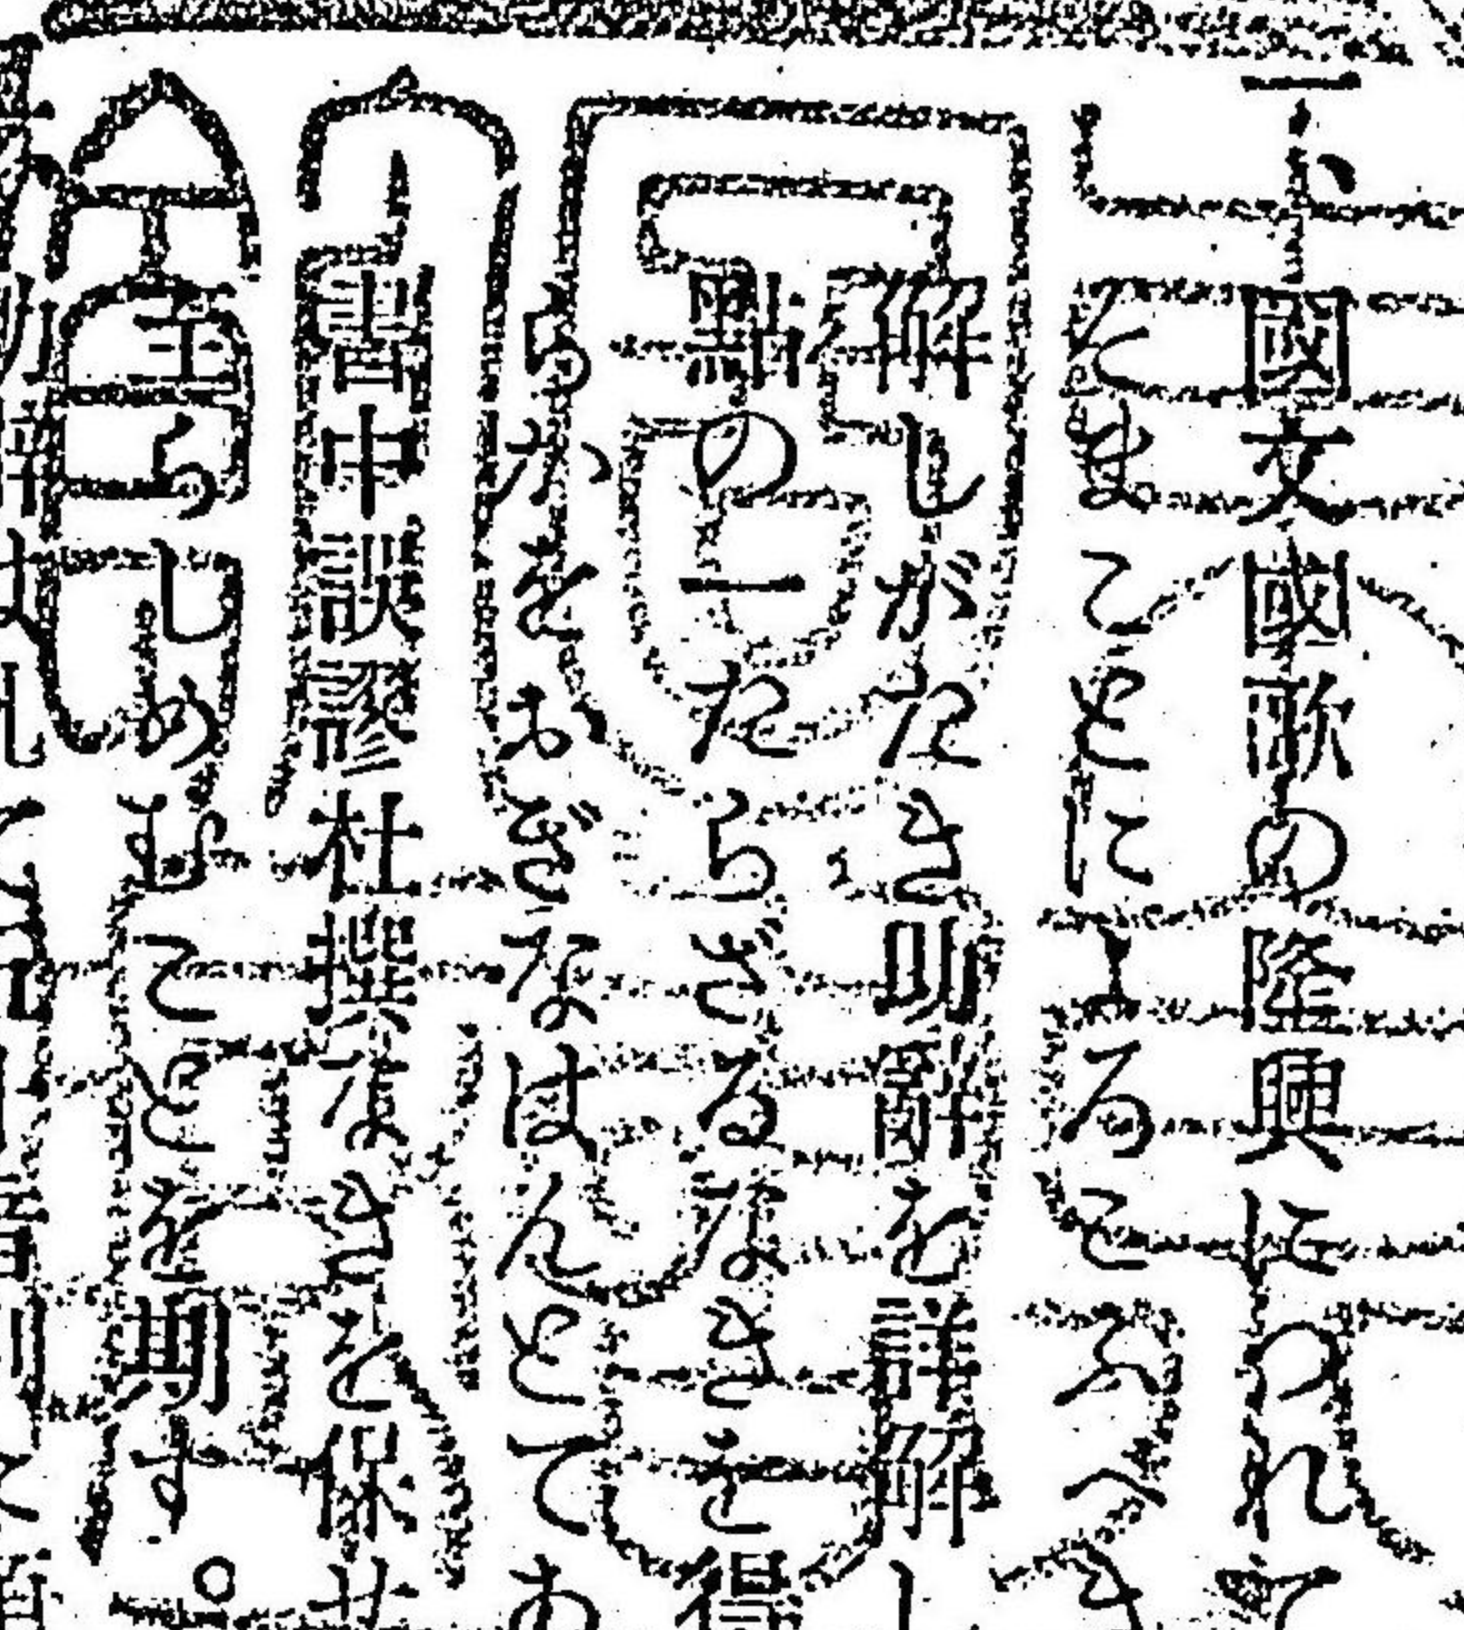 一、國文國歌の隆興につれて
てまことによろこふへき
解しがたき助辭を詳解し
點の一たらざるなきを得
らかをおぎなはんとてあ
書中誤謬杜撰なきを保せ
至らしめむことを期す。